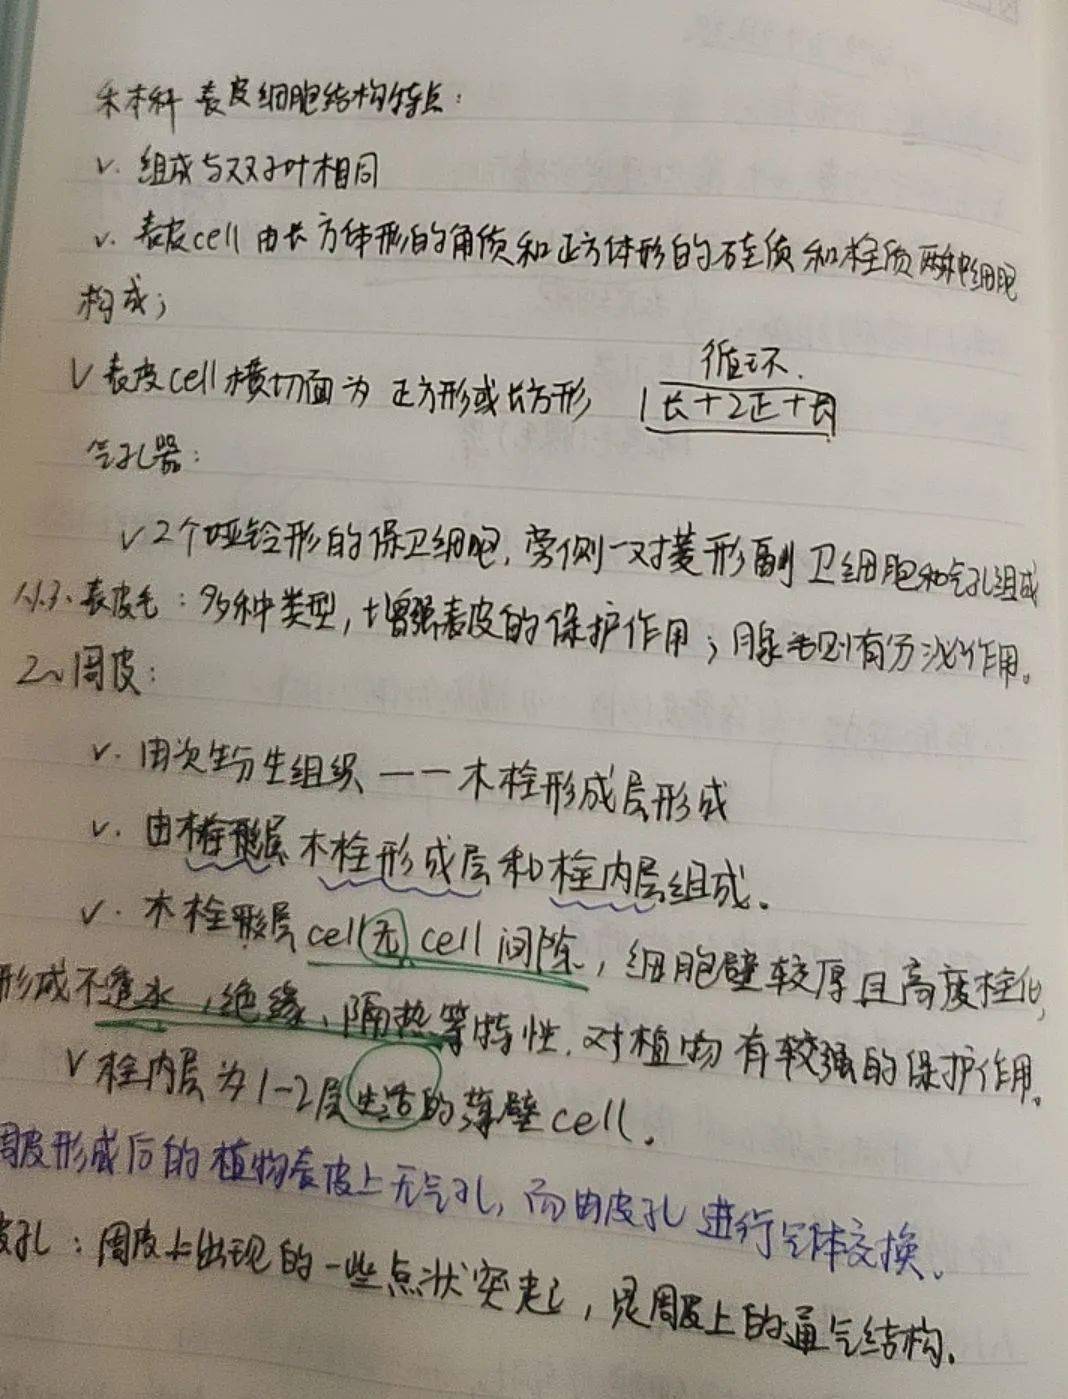 禾本科 表皮细胞结构特点：
V. 组成与双子叶相同
V. 表皮cell 由长方体形的角质和正方体形的硅质和栓质两种细胞
构成；
V 表皮cell横切面为 正方形或长方形
循环.
1长+2正+长
气孔器：
V 2个哑铃形的保卫细胞，旁侧一对菱形副卫细胞和气孔组成
1.1.3、表皮毛：多种类型，增强表皮的保护作用；腺毛则有分泌作用。
2、周皮：
V. 由次生分生组织 —— 木栓形成层形成
V. 由木栓形层 木栓形成层和栓内层组成。
V. 木栓形层cell无cell间隙，细胞壁较厚且高度栓化，
形成不透水，绝缘、隔热等特性，对植物有较强的保护作用。
V 栓内层为1-2层生活的薄壁cell。
周皮形成后的植物表皮上无气孔，而由皮孔进行气体交换。
皮孔：周皮上出现的一些点状突起，是周皮上的通气结构。